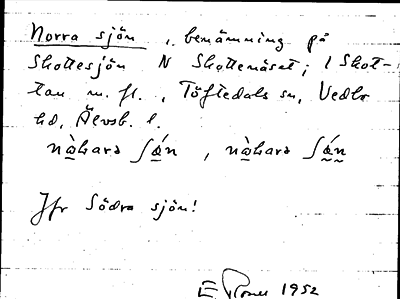 Norra sjön, benämning på
Skottesjön N Skottenäset; i Skot-
tan m. fl., Töftedals sn, Vedbo
hd, Älvsb. l.
nòhara ʃón, nòhara ʃón
Jfr Södra sjön!
E 1952